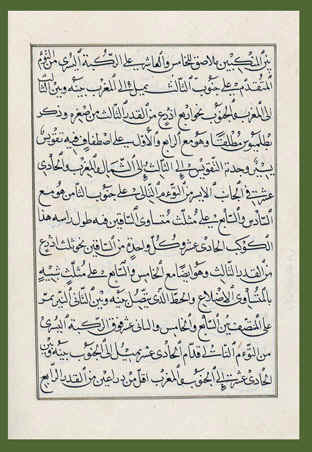 بين المنكبين يلاصق الخامس والعاشر على الركبة اليسرى من التوءم
المتقدم على جنوب الثالث يميل الى المغرب بينه وبين الثالث
الى المغرب الجنوب نحو اربع اذرع من القدر الثالث من اصغره وذكر
بطلميوس مطلقا وهو مع الرابع والأول على اصطفاف فيه تقويس
وحدبة التقويس الى الشمال والمغرب والحادى
عشر فى الجانب الايسر من التوءم التالى على جنوب الثامن هو مع
الثامن والتاسع على مثلث متساوى الساقين فيه طول راسه هذا
الكوكب الحادى عشر وكل واحدة من الساقين نحو ثلث اذرع
من القدر الثالث وهو ايضا مع الخامس والتاسع على مثلث شبيه
بالمتساوى الاضلاع والخط الذى يتصل بينه وبين الثانى الثير يمر
على المنتصف بين التاسع والخامس والثانى عشر فوق الركبة اليسرى
من التوءم التالى قدام الحادى عشر يميل الى الجنوب بينه وبين
الحادى عشر الى الجنوب والمغرب اقل من ذراعين من القدر الرابع